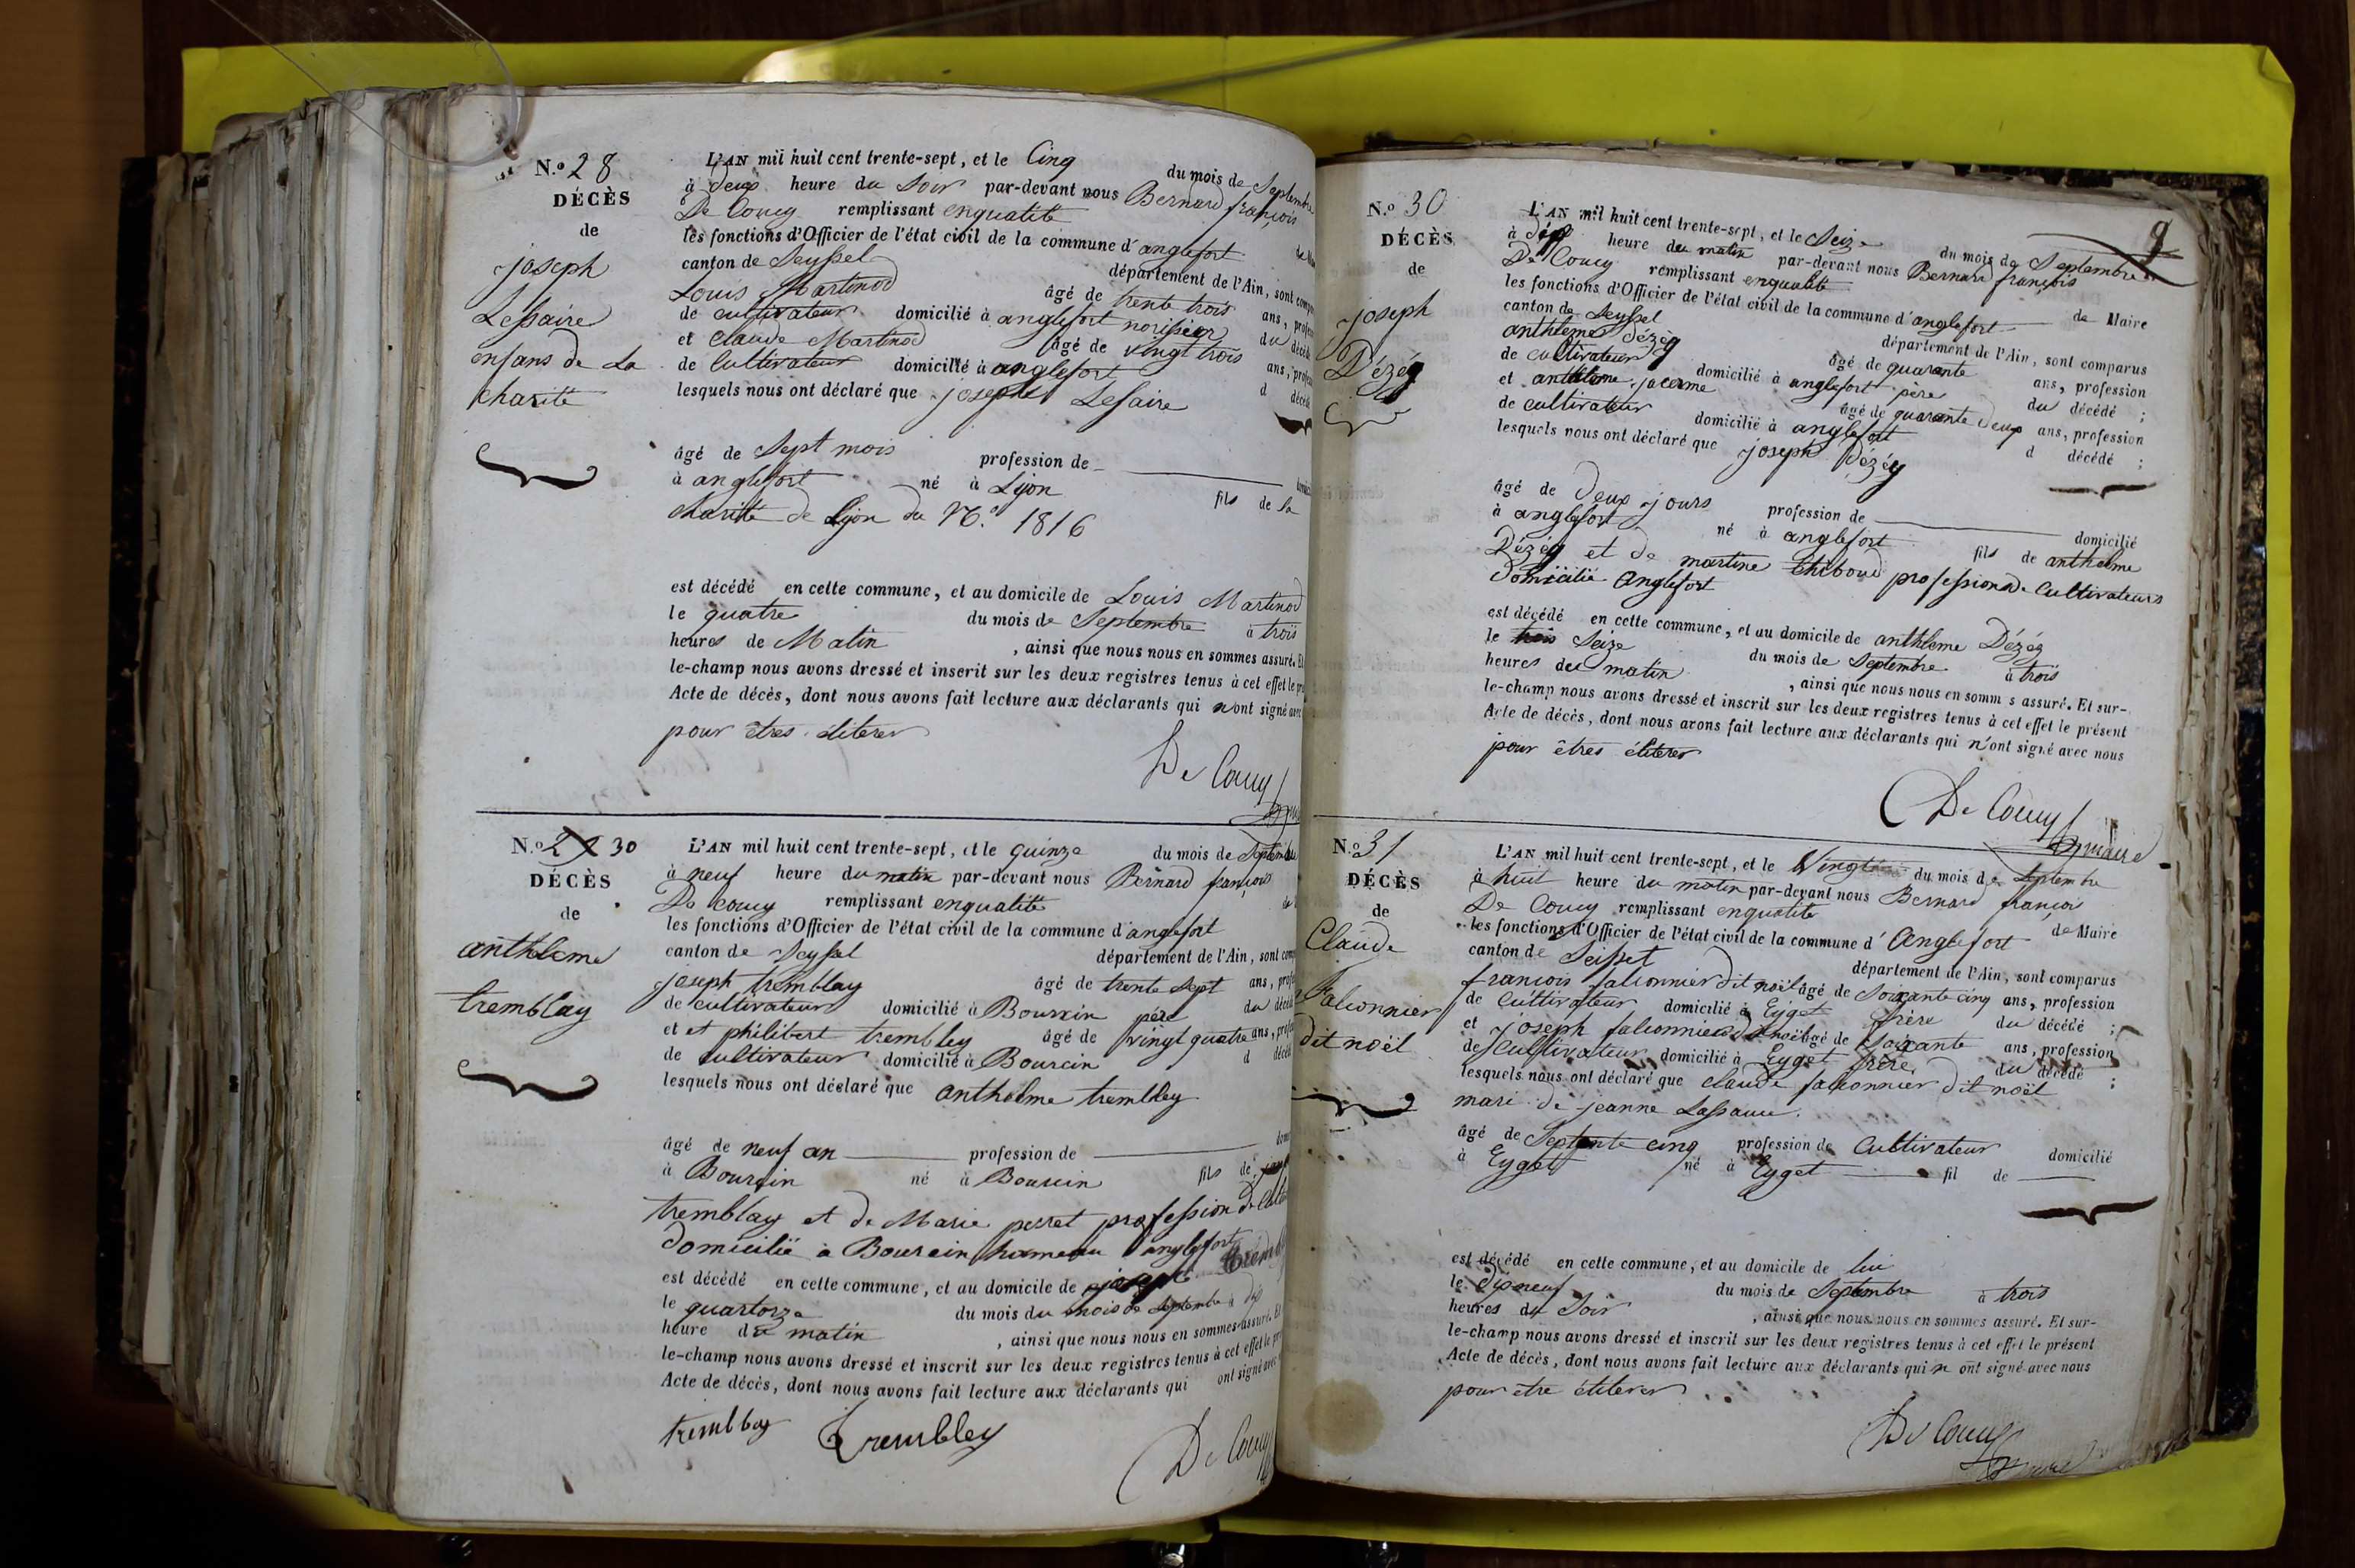 N.o 28
DÉCÈS
de
joseph
Lessaire
enfans de La
charité
L'AN mil huit cent trente-sept, et le Cinq du mois de Septembre
à deux heure du Soir par-devant nous Bernard françois
De Coucy remplissant enqualité
les fonctions d'Officier de l'état civil de la commune d'anglefort
canton de Seyssel département de l'Ain, sont
Louis Martinod âgé de trente trois ans,
de cultivateur domicilié à anglefort du
et Claude Martinod âgé de vingt trois ans,
de Cultivateur domicilié à anglefort d
lesquels nous ont déclaré que joseph Lesaire
âgé de Sept mois profession de
à anglefort né à Lyon fils de la
charité de Lyon du No. 1816
est décédé en cette commune, et au domicile de Louis Martinod
le quatre du mois de Septembre à trois
heures de Matin , ainsi que nous nous en sommes assuré. Et
le-champ nous avons dressé et inscrit sur les deux registres tenus à cet effet le
Acte de décès, dont nous avons fait lecture aux déclarants qui n'ont signé avec
pour êtres éliterer
De Coucy
N.o 29 30
DÉCÈS
de
anthleme
tremblay
L'AN mil huit cent trente-sept, et le quinze du mois de Septembre
à neuf heure du matin par-devant nous Bernard françois
De Coucy remplissant enqualité
les fonctions d'Officier de l'état civil de la commune d'anglefort
canton de Seyssel département de l'Ain, sont
joseph tremblay âgé de trente Sept ans,
de cultivateur domicilié à Bourcin père du
et et philibert trembley âgé de vingt quatre ans,
de cultivateur domicilié à Bourcin d
lesquels nous ont déclaré que anthelme trembley
âgé de neuf an profession de
à Bourcin né à Bourcin fils de
tremblay et de Marie perret profession de
domicilié à Bourcin hameau d'anglefort
est décédé en cette commune, et au domicile de joseph
le quartorze du mois du mois de Septembre à dix
heure de matin , ainsi que nous nous en sommes assuré. Et
le-champ nous avons dressé et inscrit sur les deux registres tenus à cet effet le
Acte de décès, dont nous avons fait lecture aux déclarants qui ont signé avec
tremblay Trembley
De Coucy
9
N.o 30
DÉCÈS
de
joseph
Dézég
L'AN mil huit cent trente-sept, et le Seize du mois de Septembre
à heure du matin par-devant nous Bernard françois
De Coucy remplissant enqualité de Maire
les fonctions d'Officier de l'état civil de la commune d'anglefort
canton de Seyssel département de l'Ain, sont comparus
anthleme Dézég âgé de quarante ans, profession
de cultivateur domicilié à anglefort père du décédé ;
et anthleme jacerme âgé de quarante deux ans, profession
de cultivateur domicilié à anglefort d décédé ;
lesquels nous ont déclaré que joseph Dézég
âgé de deux jours profession de domicilié
à anglefort né à anglefort fils de anthelme
Dézég et de martine thiboud profession de Cultivateurs
domicilié anglefort
est décédé en cette commune, et au domicile de anthleme Dézég
le trois Seize du mois de Septembre à trois
heures du matin , ainsi que nous nous en somm s assuré. Et sur-
le-champ nous avons dressé et inscrit sur les deux registres tenus à cet effet le présent
Acte de décès, dont nous avons fait lecture aux déclarants qui n'ont signé avec nous
pour êtres éliterer
De Coucy
maire
N.o 31
DÉCÈS
de
Claude
Falconnier
dit noël
L'AN mil huit cent trente-sept, et le Vingt du mois de Septembre
à huit heure du matin par-devant nous Bernard françois
De Coucy remplissant enqualité de Maire
les fonctions d'Officier de l'état civil de la commune d'Anglefort
canton de Seissel département de l'Ain, sont comparus
francois falconnier dit noël âgé de Soixante cinq ans, profession
de Cultivateur domicilié à Eyget frère du décédé ;
et joseph falconnier dit noël âgé de Soixante ans, profession
de Cultivateur domicilié à Eyget frère du décédé ;
lesquels nous ont déclaré que claude falconnier dit noël
mari de jeanne
âgé de Septente cinq profession de Cultivateur domicilié
à Eyget né à Eyget fil de
est décédé en cette commune, et au domicile de lui
le dixneuf du mois de Septembre à trois
heures du Soir , ainsi que nous nous en sommes assuré. Et sur-
le-champ nous avons dressé et inscrit sur les deux registres tenus à cet effet le présent
Acte de décès, dont nous avons fait lecture aux déclarants qui n ont signé avec nous
pour etre éliterer
De Coucy